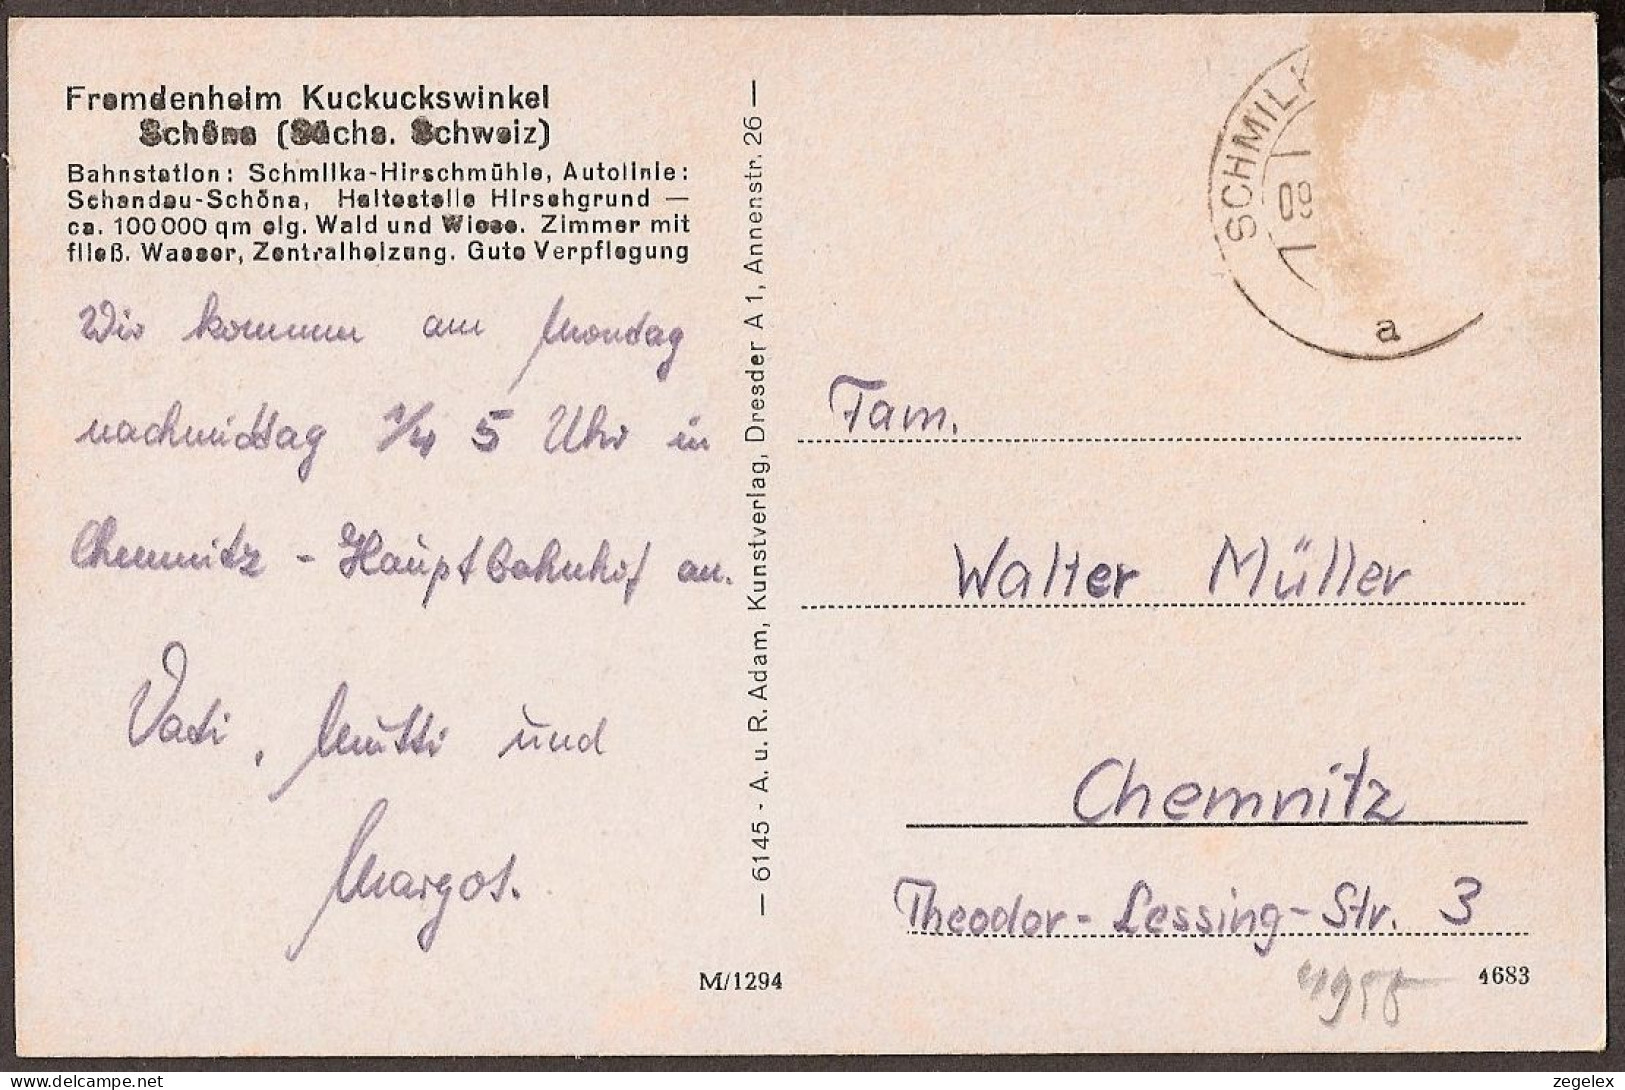 Fremdenheim Kuckuckswinkel
Schöna (Sächs. Schweiz)
Bahnstation: Schmilka-Hirschmühle, Autolinie:
Schandau-Schöna, Haltestelle Hirschgrund —
ca. 100 000 qm eig. Wald und Wiese. Zimmer mit
fließ. Wasser, Zentralheizung. Gute Verpflegung
Wir kommen am Montag
nachmittag 1/4 5 Uhr in
Chemnitz - Hauptbahnhof an.
Vati, Mutti und
Margot.
— 6145 - A. u. R. Adam, Kunstverlag, Dresden A 1, Annenstr. 26 —
SCHMILK
09
a
Fam.
Walter Müller
Chemnitz
Theodor-Lessing-Str. 3
M/1294
4683
zegelex
delcampe.net